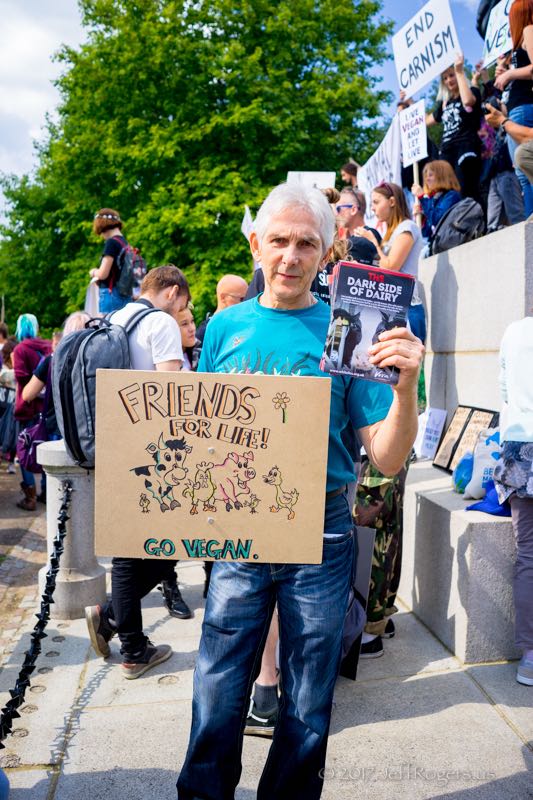 END
CARNISM
LIVE
VEGAN
AND
LET
LIVE
THE
DARK SIDE
OF DAIRY
Viva!
FRIENDS
FOR LIFE!
GO VEGAN.
©2017 JeffRogers.us